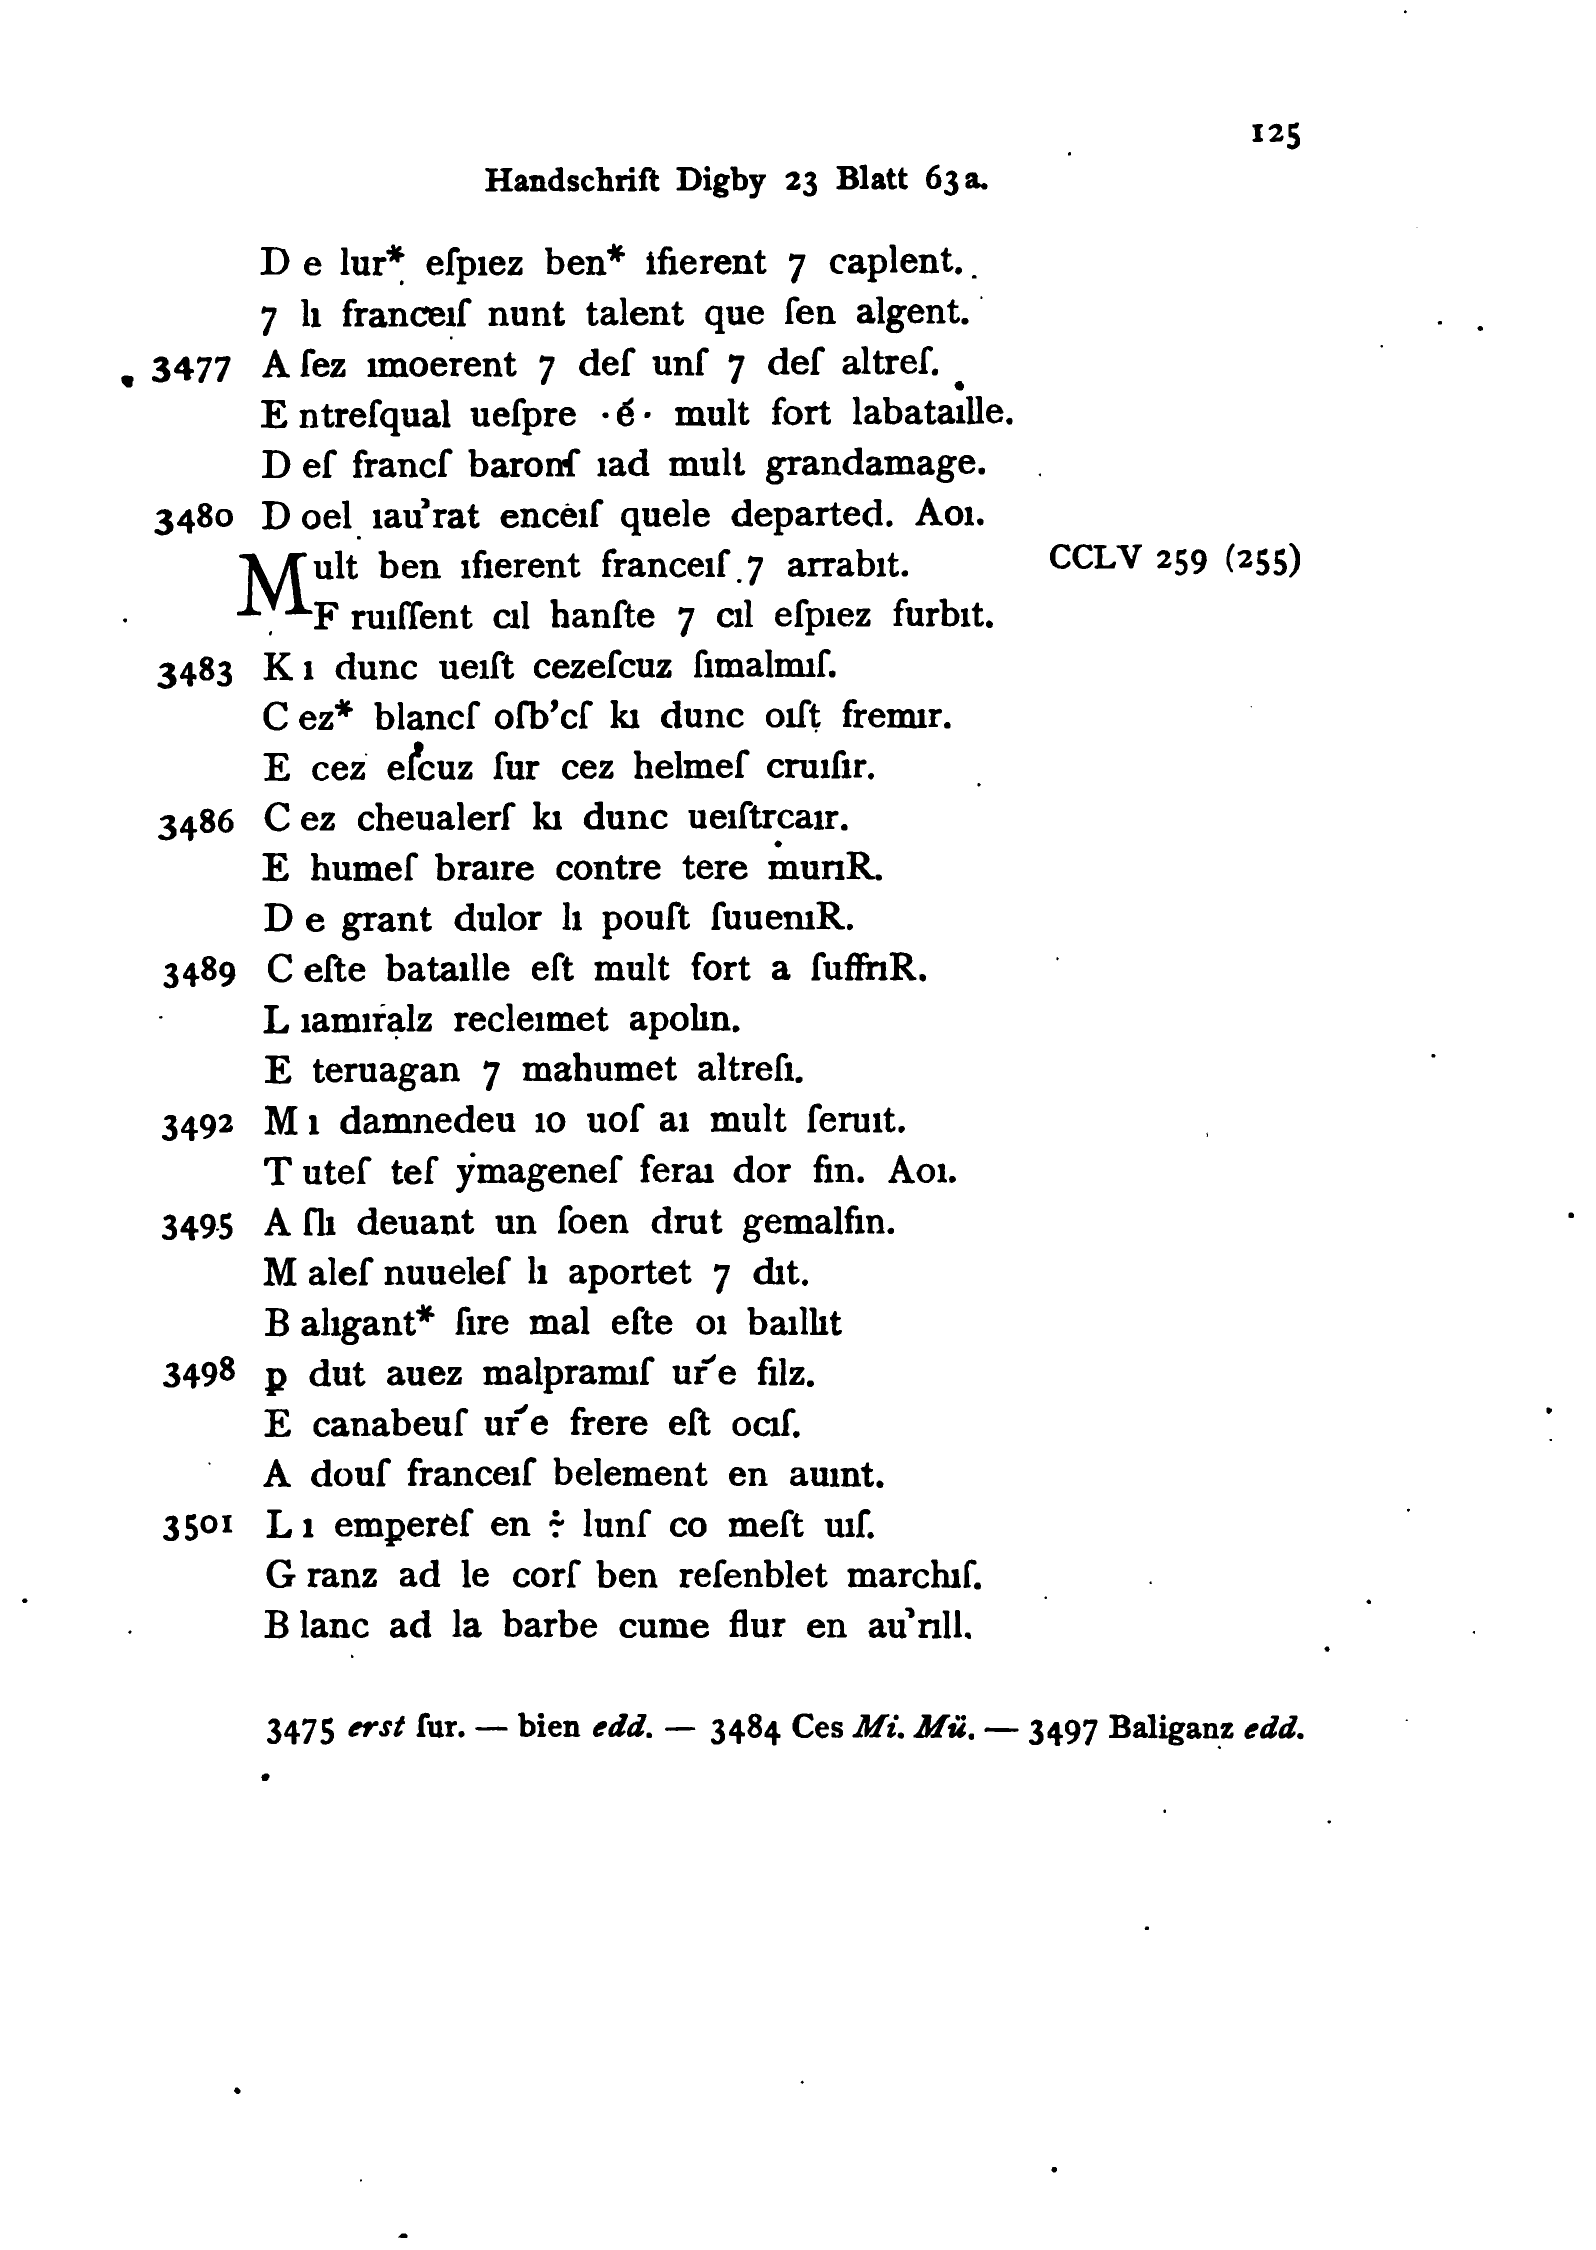 125
Handschrift Digby 23 Blatt 63a.
D e lur* eſpıez ben* ıfierent 7 caplent.
7 lı franceıſ nunt talent que ſen algent.
3477 A ſez ımoerent 7 deſ unſ 7 deſ altreſ.
E ntreſqual ueſpre ·é· mult fort labataılle.
D eſ francſ baronſ ıad mult grandamage.
3480 D oel ıau’rat enceıſ quele departed. Aoı.
Mult ben ıfierent franceıſ 7 arrabıt. CCLV 259 (255)
F ruıſſent cıl hanſte 7 cıl eſpıez furbıt.
3483 K ı dunc ueıſt cezeſcuz ſımalmıſ.
C ez* blancſ oſb’cſ kı dunc oıſt fremır.
E cez eſcuz ſur cez helmeſ cruıſır.
3486 C ez cheualerſ kı dunc ueıſtrcaır.
E humeſ braıre contre tere murıR.
D e grant dulor lı pouſt ſuuenıR.
3489 C eſte bataılle eſt mult fort a ſuffrıR.
L ıamıralz recleımet apolın.
E teruagan 7 mahumet altreſı.
3492 M ı damnedeu ıo uoſ aı mult ſeruıt.
T uteſ teſ ẏmageneſ feraı dor fin. Aoı.
3495 A ſlı deuant un ſoen drut gemalfin.
M aleſ nuueleſ lı aportet 7 dıt.
B alıgant* ſıre mal eſte oı baıllıt
3498 p dut auez malpramıſ ur̄e filz.
E canabeuſ ur̄e frere eſt ocıſ.
A douſ franceıſ belement en auınt.
3501 L ı empereſ en ÷ lunſ co meſt uıſ.
G ranz ad le corſ ben reſenblet marchıſ.
B lanc ad la barbe cume flur en au’rıll.
3475 erst ſur. — bien edd. — 3484 Ces Mi. Mü. — 3497 Baliganz edd.